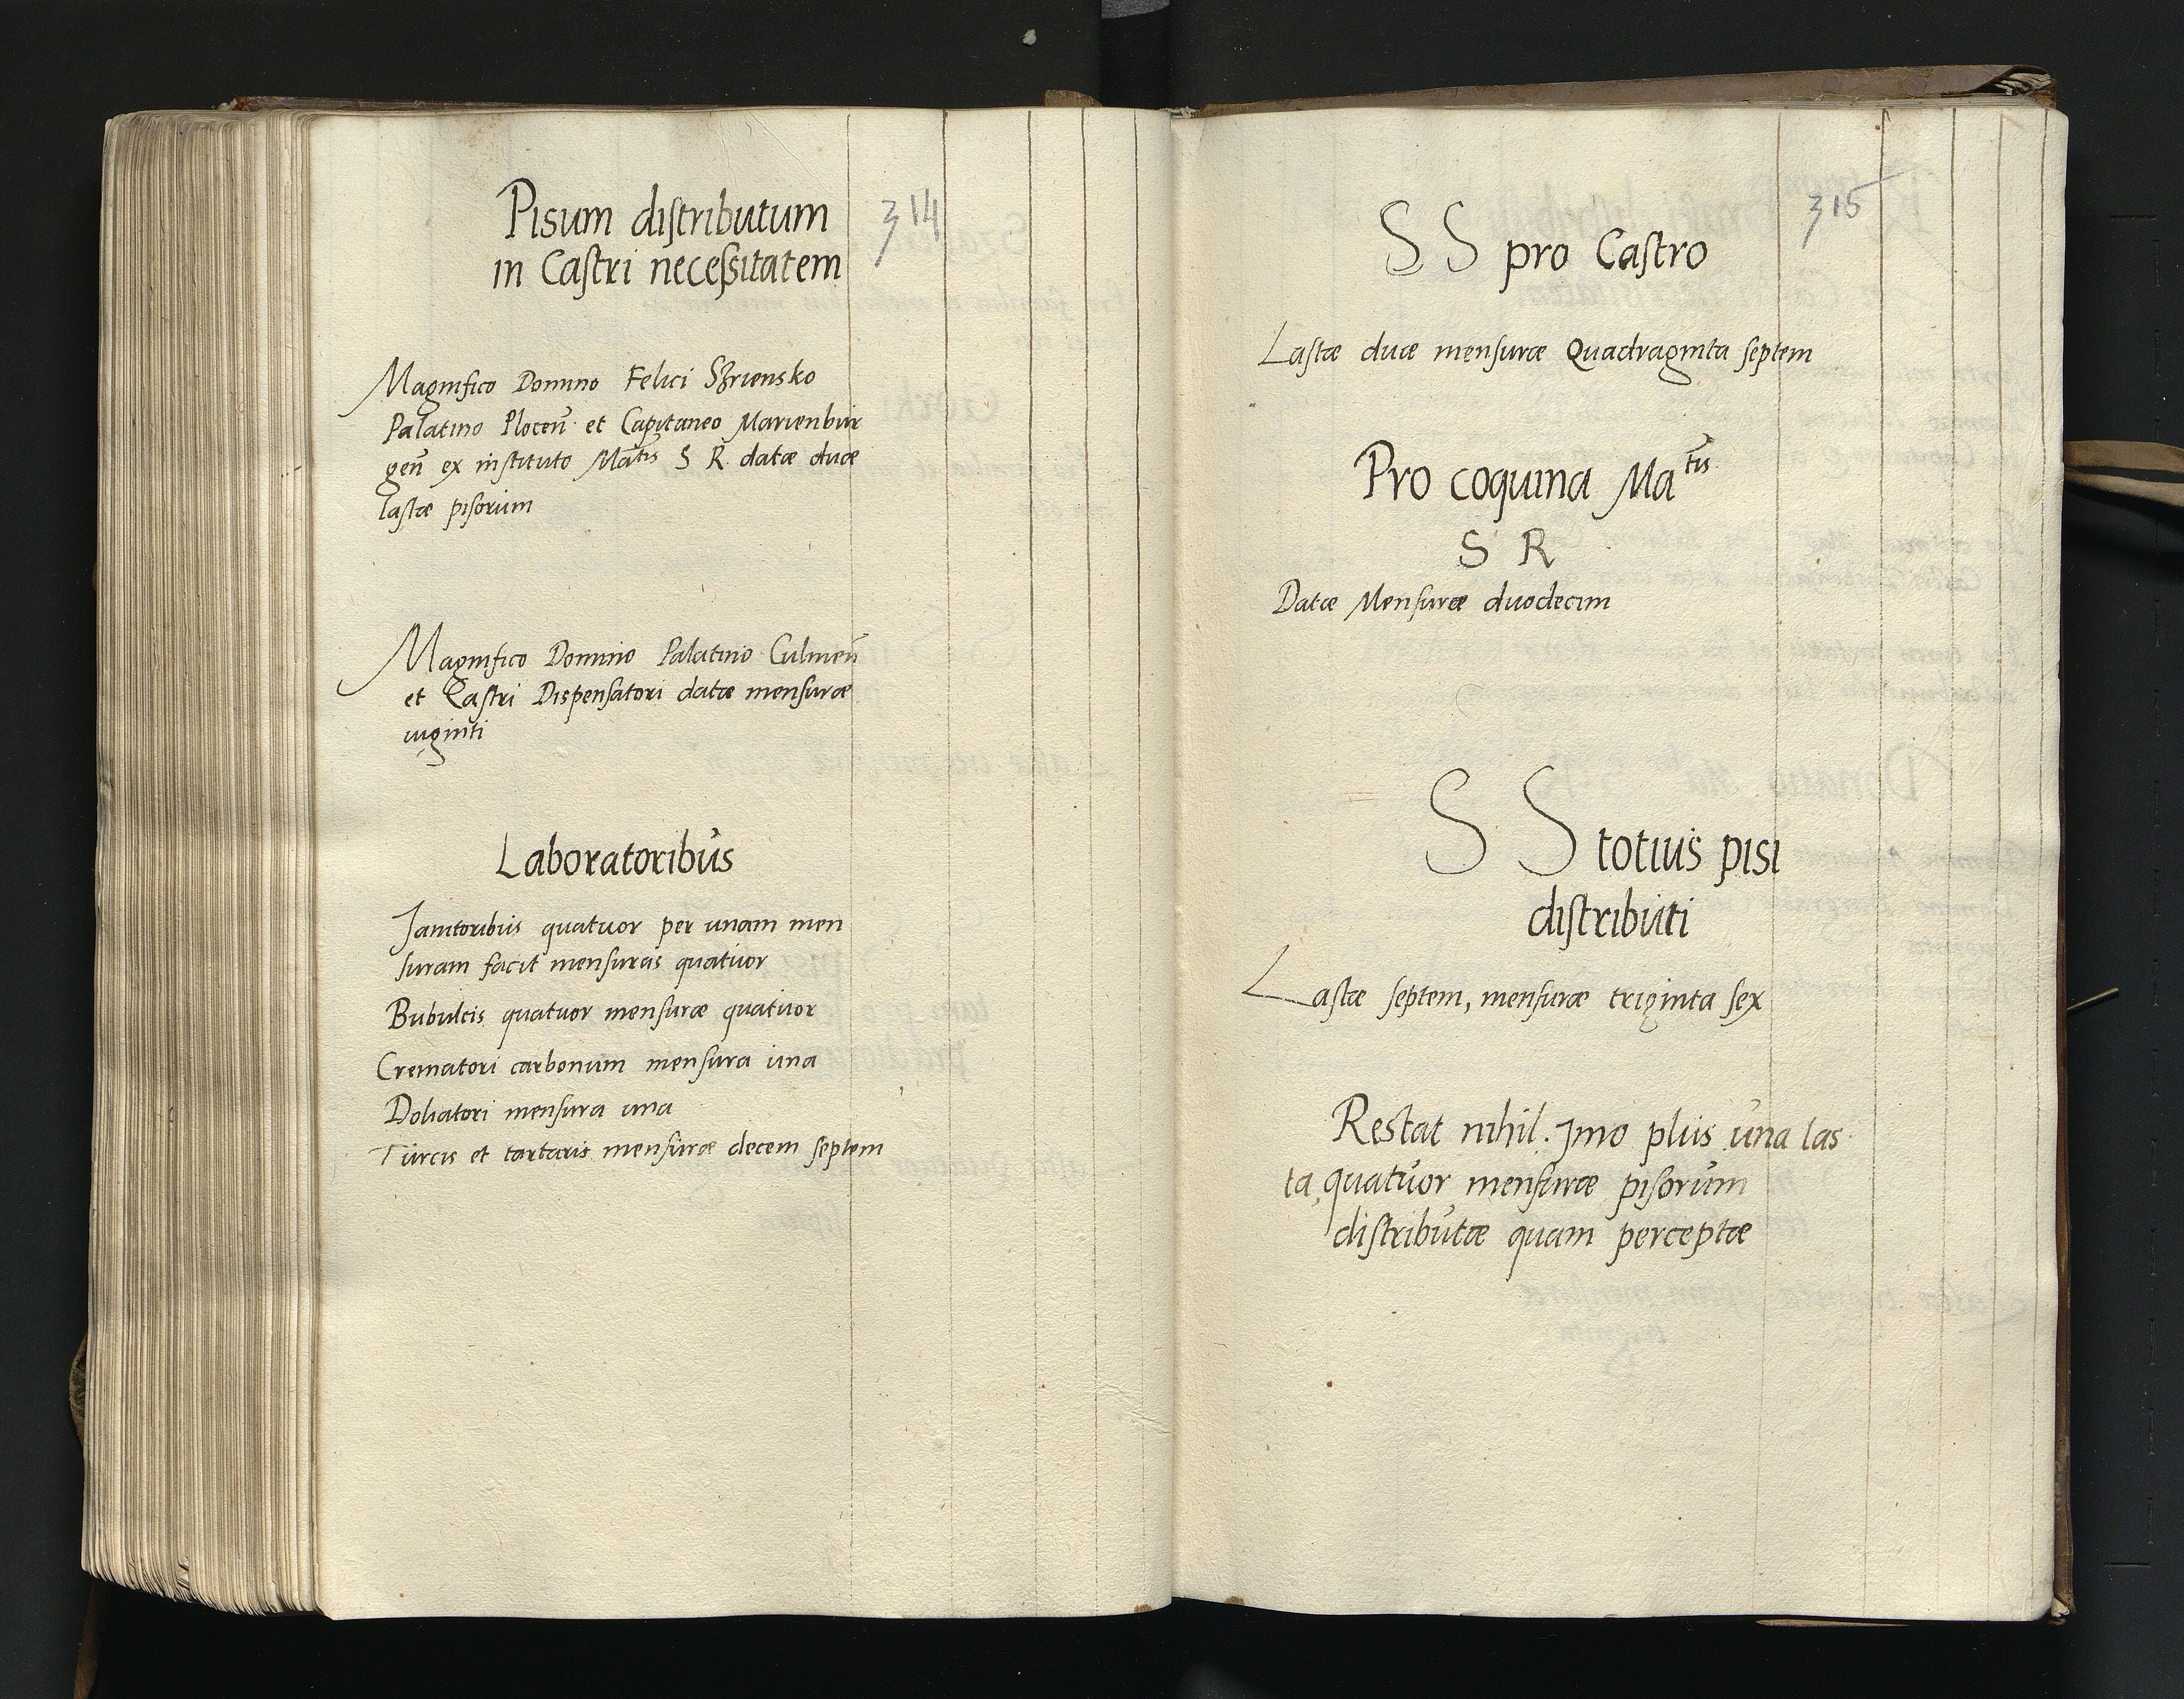 314
Pisum distributum
in Castri necessitatem
Magnifico Domino Felici Szriensko
Palatino Plocen̄ et Capitaneo Marienbur
gen̄ ex instituto Ma͞tis S R datæ duæ
lastæ pisorum
Magnifico Domino Palatino Culmen̄
et Castri Dispensatori datæ mensuræ
viginti
Laboratoribus
Janitoribus quatuor per unam men
suram facit mensuras quatuor
Bubulcis quatuor mensuræ quatuor
Crematori carbonum mensura una
Doliatori mensura una
Turcis et tartaris mensuræ decem septem
315
S S pro Castro
Lastæ duæ mensuræ Quadraginta septem
Pro coquina Ma͞tis
S R
Datæ Mensuræ duodecim
S S totius pisi
distributi
Lastæ septem, mensuræ triginta sex
Restat nihil. Imo plus una las
ta, quatuor mensuræ pisorum
distributæ quam perceptæ